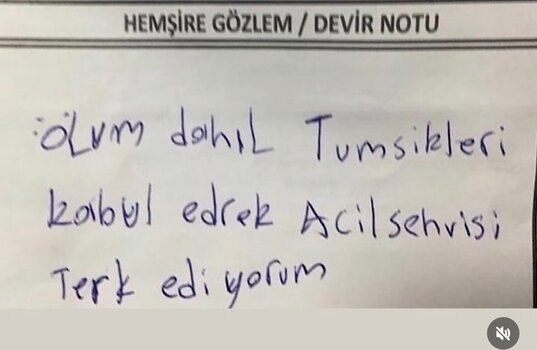 HEMŞİRE GÖZLEM / DEVİR NOTU
ÖLum dahıL Tumsikleri
kabul edrek Acilsehvisi
Terk ediyorum